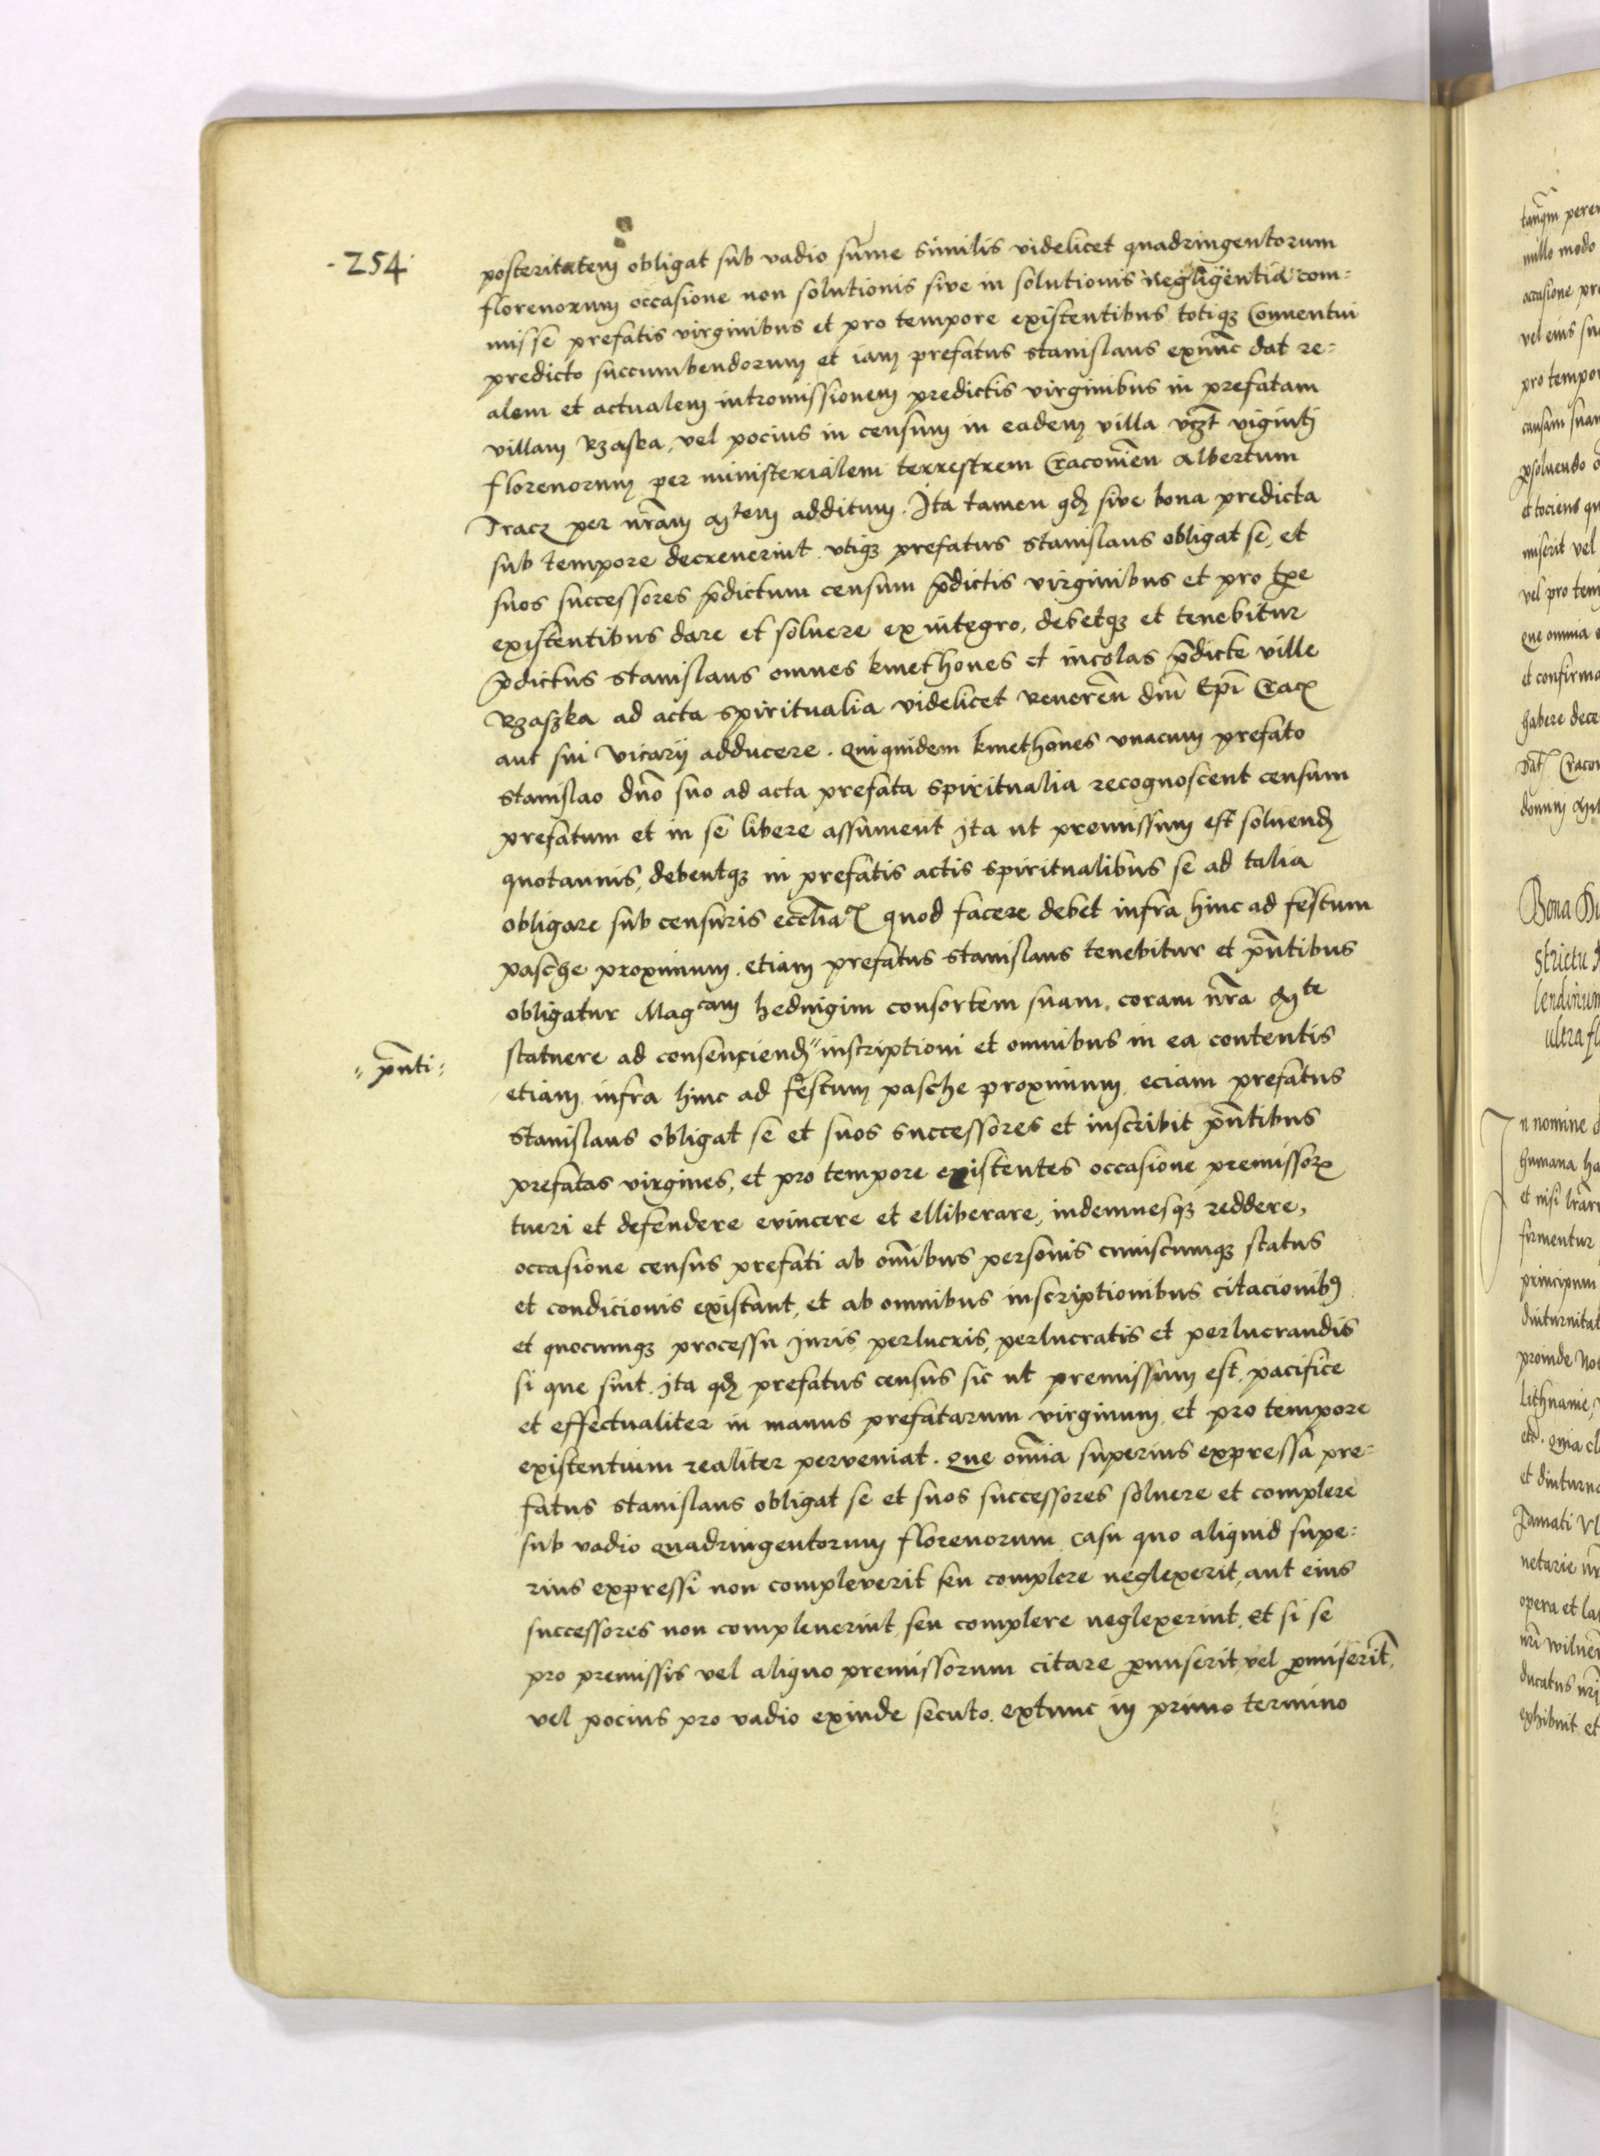 ·254·
posteritatem obligat sub vadio sume similis videlicet quadringentorum
florenorum occasione non solutionis sive in solutionis negligentia com=
misse prefatis virginibus et pro tempore existentibus totiqꝫ Conventui
predicto succumbendorum et iam prefatus stanislaus exnunc dat re=
alem et actualem intromissionem predictis virginibus in prefatam
villam Rzaska, vel pocius in censum in eadem villa vczt viginti
florenorum per ministerialem terrestrem Cracovien Albertum
Tracz per nram Mtem additum. Ita tamen qd sive bona predicta
sub tempore decreverint utiqꝫ prefatus stanislaus obligat se, et
suos successores pdictum censum pdictis virginibus et pro tpe
existentibus dare et soluere ex integro, debetqꝫ et tenebitur
pdictus stanislaus omnes kmethones et incolas pdicte ville
Rzaszka ad acta spiritualia videlicet Reveren dni Epi Crac
aut sui vicarij adducere. Quiquidem kmethones unacum prefato
stanislao dno suo ad acta prefata spiritualia recognoscent censum
prefatum et in se libere assument ita ut premissum est soluend
quotannis, debentqꝫ in prefatis actis spiritualibus se ad talia
obligare sub censuris ecclia quod facere debet infra hinc ad festum
pasche proximum. etiam prefatus stanislaus tenebitur et pntibus
obligatur Magcam hedvigim consortem suam, coram nra Mte
statuere ad consenciend" inscriptioni et omnibus in ea contentis
"pnti"
etiam infra hinc ad festum pasche proximum, eciam prefatus
stanislaus obligat se et suos successores et inscribit pntibus
prefatas virgines, et pro tempore existentes occasione premissor
tueri et defendere evincere et elliberare, indemnesqꝫ reddere,
occasione census prefati ab omibus personis cuiuscumqꝫ status
et condicionis existant, et ab omnibus inscriptionibus citacionibꝫ
et quocumqꝫ processu iuris perlucris, perlucratis et perlucrandis
si que sint. ita qd prefatus census sic ut premissum est, pacifice
et effectualiter in manus prefatarum virginum, et pro tempore
existentium realiter perveniat. Que omia superius expressa pre=
fatus stanislaus obligat se et suos successores soluere et complere
sub vadio quadringentorum florenorum casu quo aliquid supe=
rius expressi non compleverit seu complere neglexerit, aut eius
successores non compleverint seu complere neglexerint, et si se
pro premissis vel aliquo premissorum citare pmiserit vel pmiserit,
vel pocius pro vadio exinde secuto, extunc in primo termino
nullo modo
occasione
pro tempor
vel pro tem
que omnia
et confirma
habere dece
Bona
ultra
In nomine
humana
et nisi
firmentur
principum
diuturnitat
proinde
et diuturn
opera et
exhibuit et